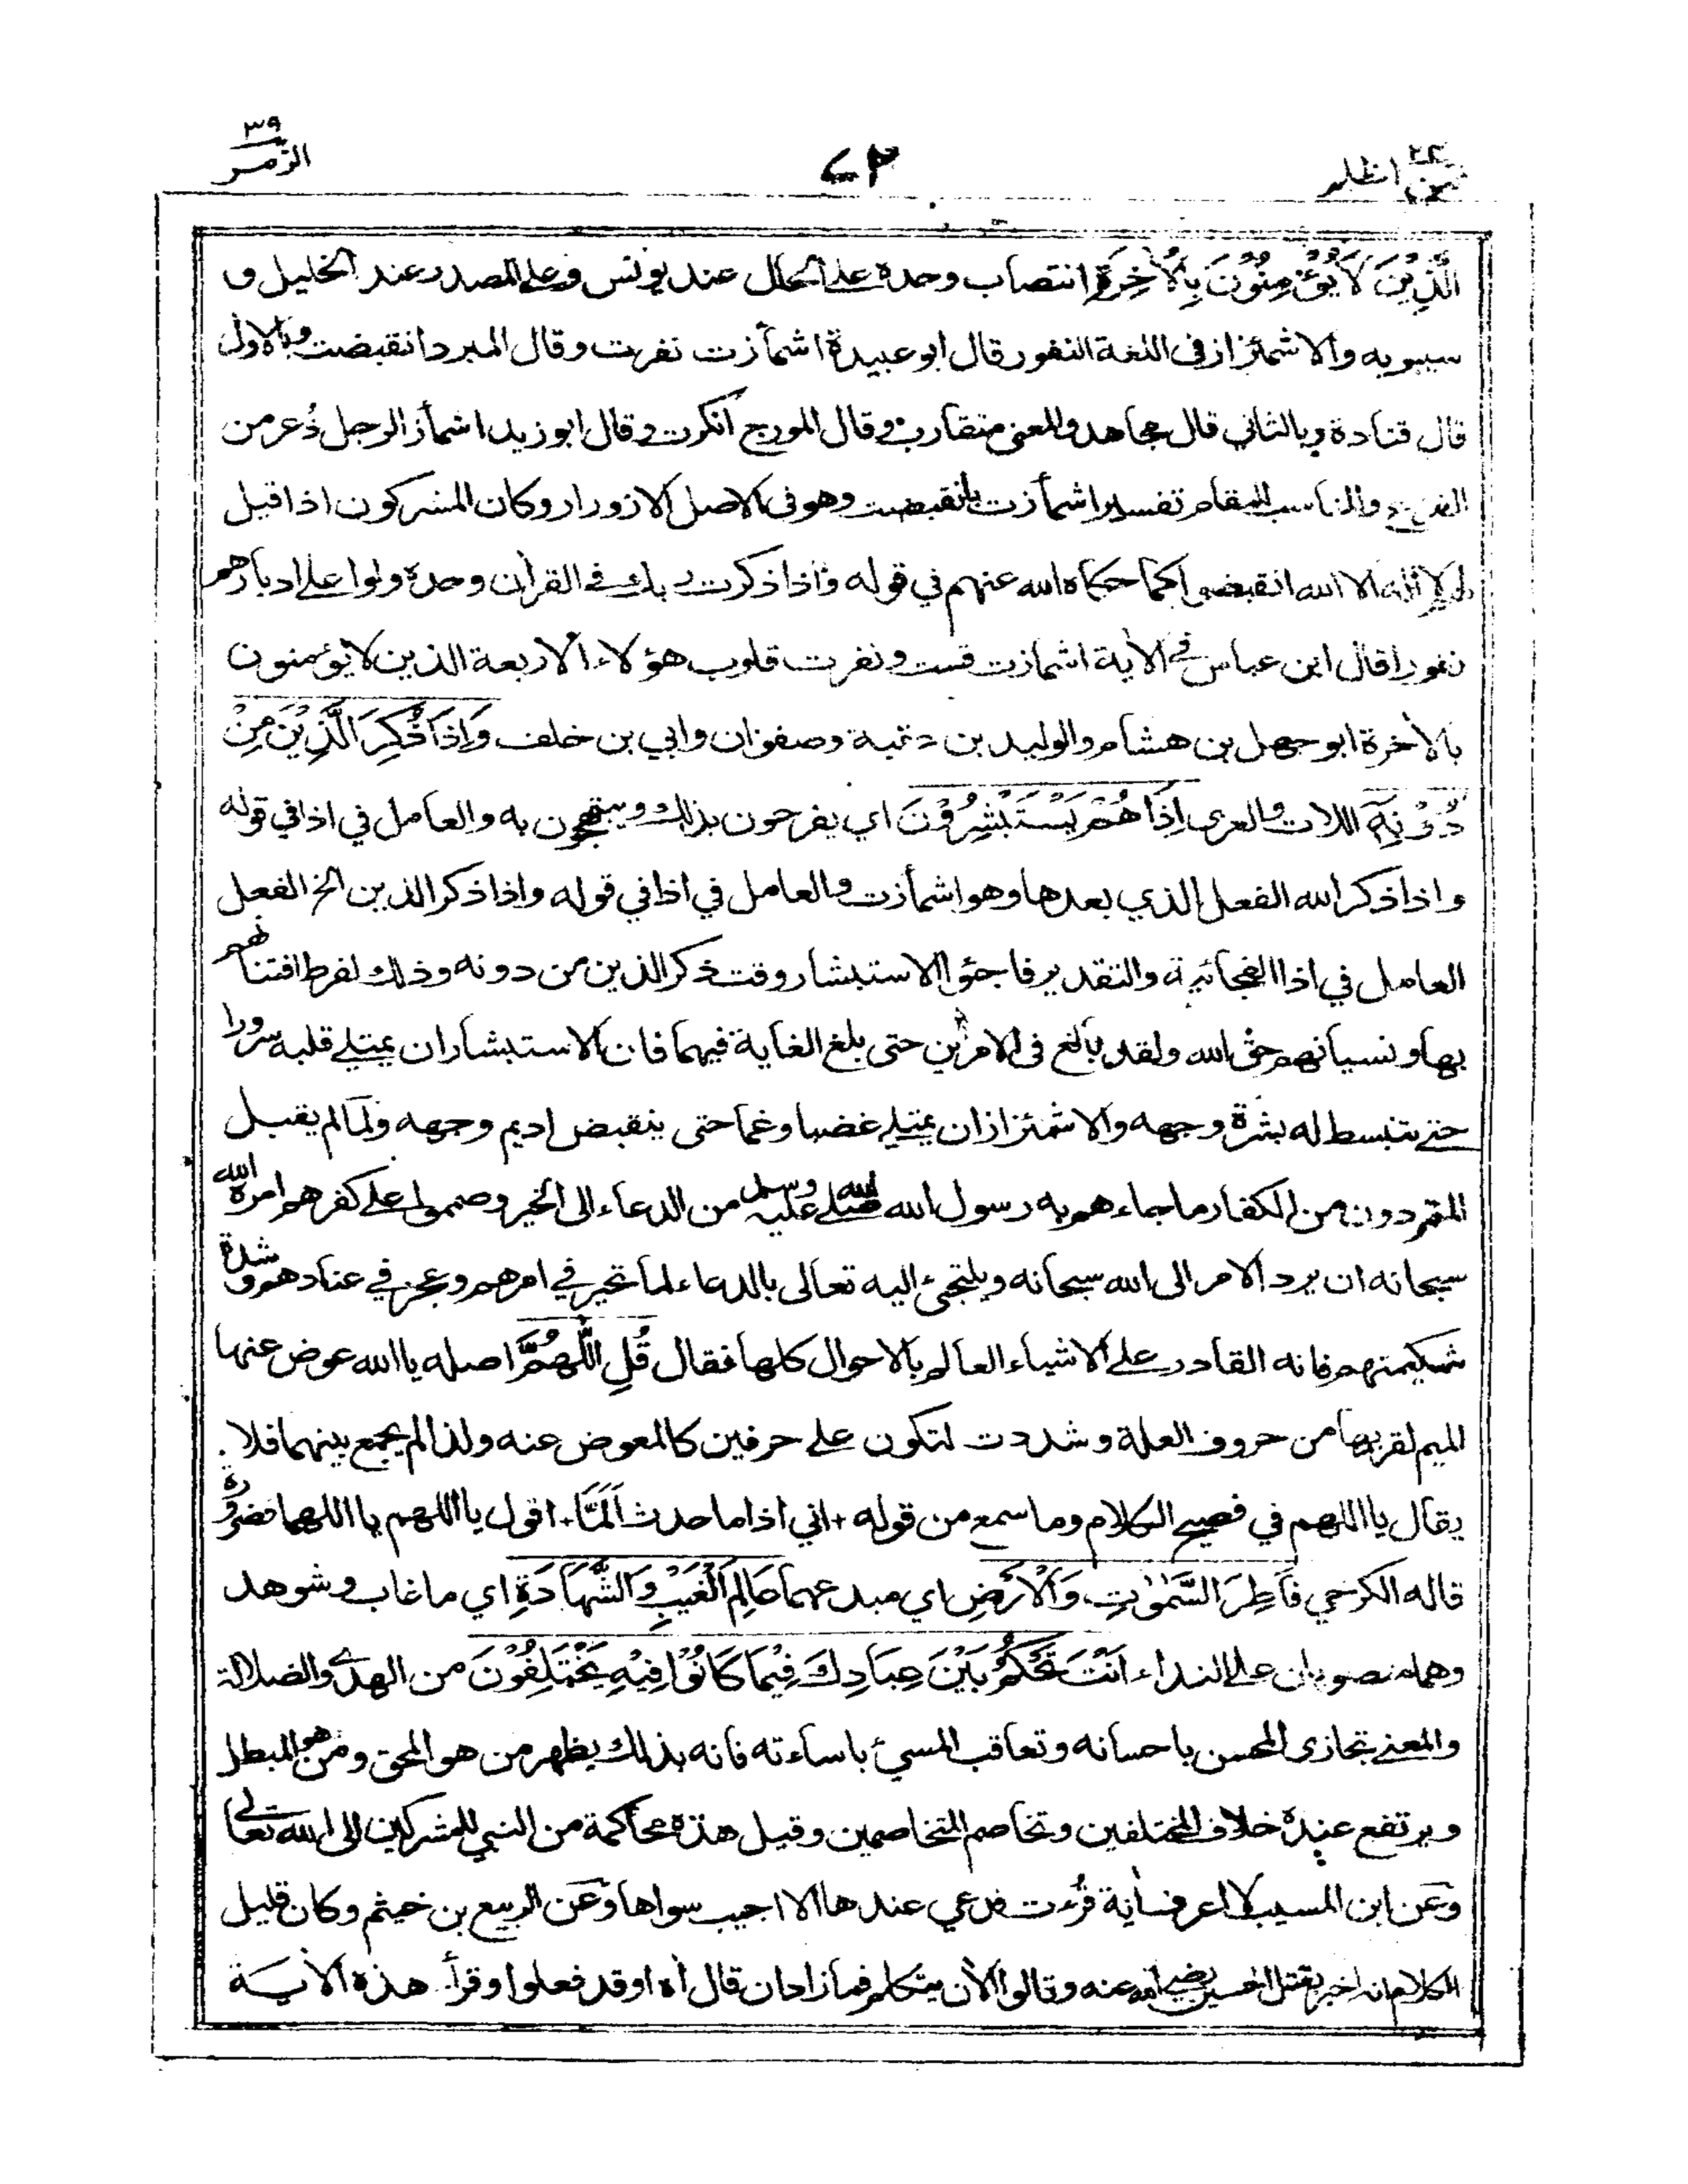 فمن اظلم ٢٤
٧٢
٣٩ الزمر
الَّذِيْنَ لَا يُؤْمِنُوْنَ بِالْاٰخِرَةِ انتصاب وحده على الحال عند يونس وعلى المصدر عند الخليل و
سيبويه والاشمئزاز في اللغة النفور قال ابو عبيدة اشمأزت نفرت وقال المبرد انقبضت وبالاول
قال قتادة وبالثاني قال مجاهد والمعنى متقارب وقال المورج انكرت وقال ابو زيد اشمأز الرجل ذُعر من
الفزع والمناسب للمقام تفسير اشمأزت بانقبضت وهو في الاصل الازورار وكان المشركون اذا قيل
لهم لا اله الا الله انقبضوا كما حكاه الله عنهم في قوله واذا ذكرت ربك في القرآن وحده ولوا على ادبارهم
نفورا قال ابن عباس في الآية اشمازت قست ونفرت قلوب هؤلاء الاربعة الذين لا يؤمنون
بالآخرة ابو جهل بن هشام والوليد بن عتبة وصفوان وابي بن خلف وَاِذَا ذُكِرَ الَّذِيْنَ مِنْ
دُوْنِهٖٓ اللات والعزى اِذَا هُمْ يَسْتَبْشِرُوْنَ اي يفرحون بذلك ويبتهجون به والعامل في اذا في قوله
واذا ذكر الله الفعل الذي بعدها وهو اشمأزت والعامل في اذا في قوله واذا ذكر الذين الخ الفعل
العامل في اذا الفجائية والتقدير فاجئوا الاستبشار وقت ذكر الذين من دونه وذلك لفرط افتتانهم
بها ونسيانهم حق الله ولقد بالغ في الامرين حتى بلغ الغاية فيهما فان الاستبشار ان يمتلي قلبه سرورا
حتى تنبسط له بشرة وجهه والاشمئزاز ان يمتلي غضبا وغما حتى ينقبض اديم وجهه ولما لم يقبل
المتمردون من الكفار ما جاءهم به رسول الله صلى الله عليه وسلم من الدعاء الى الخير وصمموا على كفرهم امره الله
سبحانه ان يرد الامر الى الله سبحانه ويلتجئ اليه تعالى بالدعاء لما تحير في امرهم وعجز في عنادهم وشدة
شكيمتهم فانه القادر على الاشياء العالم بالاحوال كلها فقال قُلِ اللّٰهُمَّ اصله يا الله عوض عنها
الميم لقربها من حروف العلة وشددت لتكون على حرفين كالمعوض عنه ولذا لم يجمع بينهما فلا
يقال يا اللهم في فصيح الكلام وما سمع من قوله + اني اذا ما حدث اَلَمَّا + اقول يا اللهم يا اللهما فضرورة
قاله الكرخي فَاطِرَ السَّمٰوٰتِ وَالْاَرْضِ اي مبدعهما عَالِمَ الْغَيْبِ وَالشَّهَادَةِ اي ما غاب وشوهد
وهما منصوبان على النداء اَنْتَ تَحْكُمُ بَيْنَ عِبَادِكَ فِيْمَا كَانُوْا فِيْهِ يَخْتَلِفُوْنَ من الهدى والضلالة
والمعنى تجازى المحسن باحسانه وتعاقب المسيئ باساءته فانه بذلك يظهر من هو المحق ومن هو المبطل
ويرتفع عنده خلاف المختلفين وتخاصم المتخاصمين وقيل هذه محاكمة من النبي للمشركين الى الله تعالى
وعن ابن المسيب لا اعرف اٰية قُرءت فدعي عندها الا اجيب سواها وعن الربيع بن خيثم وكان قليل
الكلام انه اخبر بقتل الحسين رضي الله عنه وقالوا الآن يتكلم فما زاد ان قال أه او قد فعلوا وقرأ هذه الآيــة